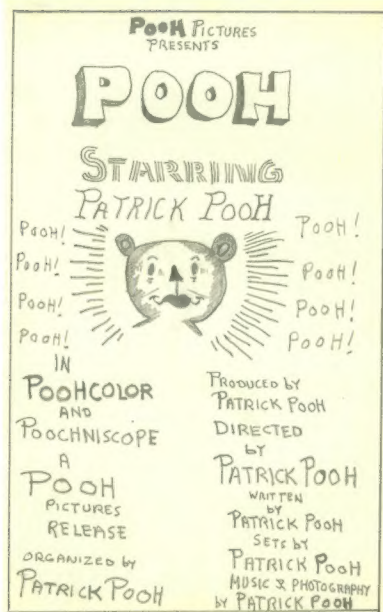 POOH PICTURES
PRESENTS
POOH
STARRING
PATRICK POOH
POOH!
POOH!
POOH!
POOH!
POOH!
POOH!
POOH!
POOH!
IN
POOHCOLOR
AND
POOCHNISCOPE
A
POOH
PICTURES
RELEASE
ORGANIZED by
PATRICK POOH
PRODUCED by
PATRICK POOH
DIRECTED
by
PATRICK POOH
WRITTEN
by
PATRICK POOH
SETS by
PATRICK POOH
MUSIC & PHOTOGRAPHY
by PATRICK POOH